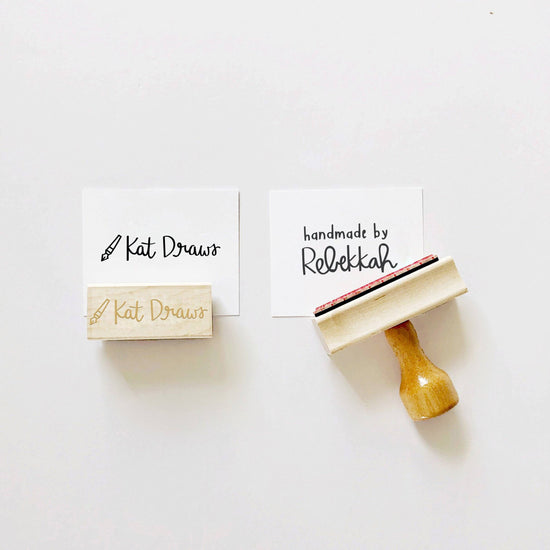 Kat Draws
Kat Draws
handmade by
Rebekkah